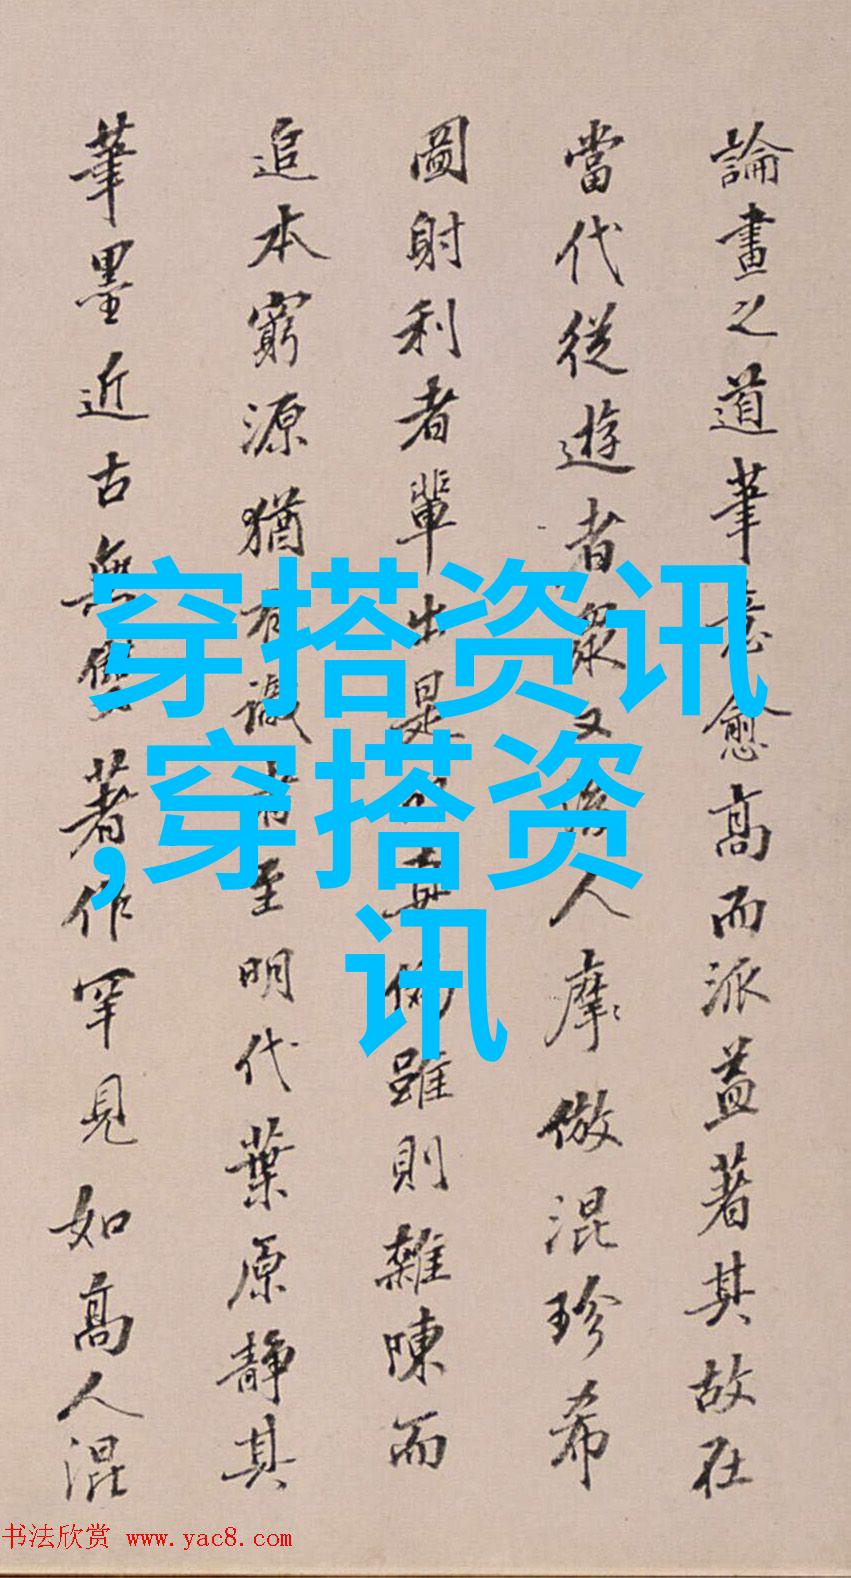 論畫之道筆意愈高而派益著其故在
當代從遊者衆又後人摩倣混珍希
圖射利者輩出是真偽雖則雜陳而
追本窮源猶有識者至明代葉原靜其
筆墨近古無雙著作罕見如高人混
穿搭资讯
,穿搭资
讯
书法欣赏 www.yac8.com